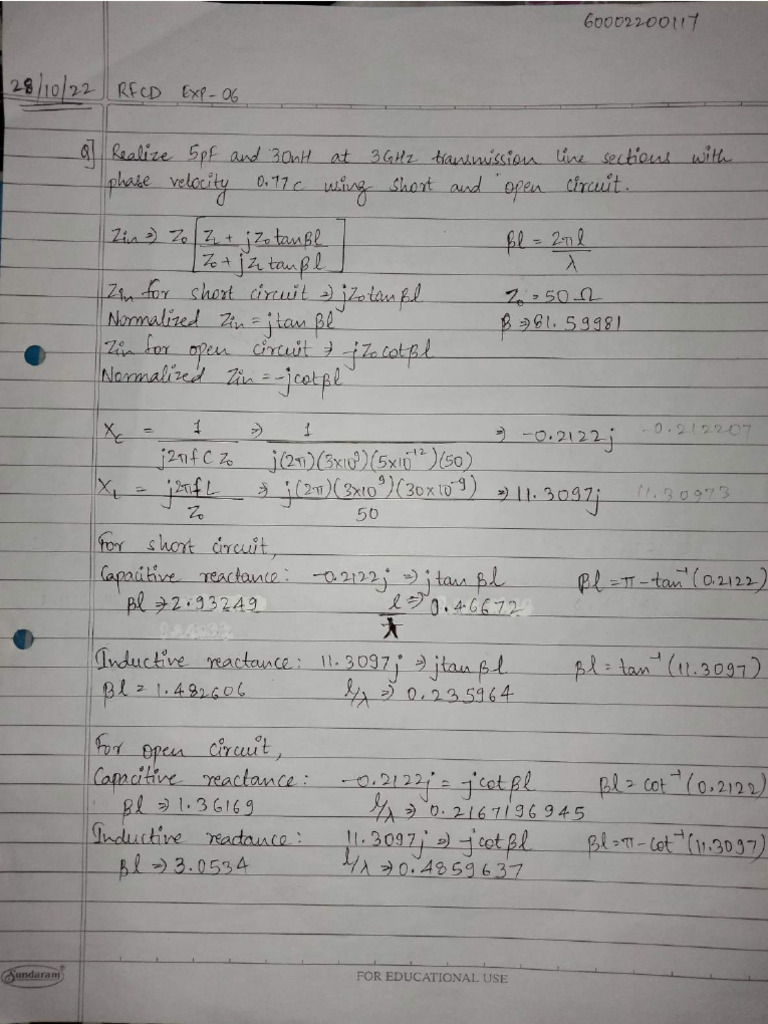 60002200117
28/10/22 RFCD EXP-06
Q] Realize 5pF and 30nH at 3GHz transmission line sections with
phase velocity 0.77c using short and open circuit.
Zin ⇒ Z₀ [ZL + jZ₀tanβl / Z₀ + jZL tanβl] βl = 2πl/λ
Zin for short circuit ⇒ jZ₀tanβl Z₀ = 50Ω
Normalized Zin = jtanβl β ⇒ 81.59981
Zin for open circuit ⇒ -jZ₀cotβl
Normalized Zin = -jcotβl
Xc = 1/j2πfCZ₀ ⇒ 1/j(2π)(3x10⁹)(5x10⁻¹²)(50) ⇒ -0.2122j -0.212207
XL = j2πfL/Z₀ ⇒ j(2π)(3x10⁹)(30x10⁻⁹)/50 ⇒ 11.3097j 11.30973
For short circuit,
Capacitive reactance: -0.2122j ⇒ jtanβl βl = π - tan⁻¹(0.2122)
βl ⇒ 2.93249 l/λ ⇒ 0.46672
Inductive reactance: 11.3097j ⇒ jtanβl βl = tan⁻¹(11.3097)
βl = 1.482606 l/λ ⇒ 0.235964
For open circuit,
Capacitive reactance: -0.2122j = -jcotβl βl = cot⁻¹(0.2122)
βl ⇒ 1.36169 l/λ ⇒ 0.2167196945
Inductive reactance: 11.3097j ⇒ -jcotβl βl = π - cot⁻¹(11.3097)
βl ⇒ 3.0534 l/λ ⇒ 0.4859637
Sundaram FOR EDUCATIONAL USE